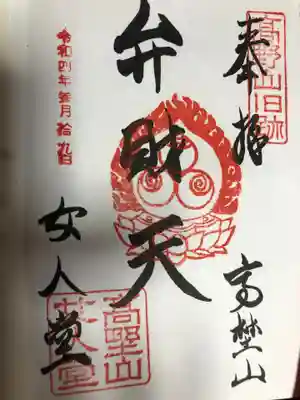 高野山旧跡
奉拝
高埜山
弁財天
令和四年参月拾九日
女人堂
高野山
女人堂